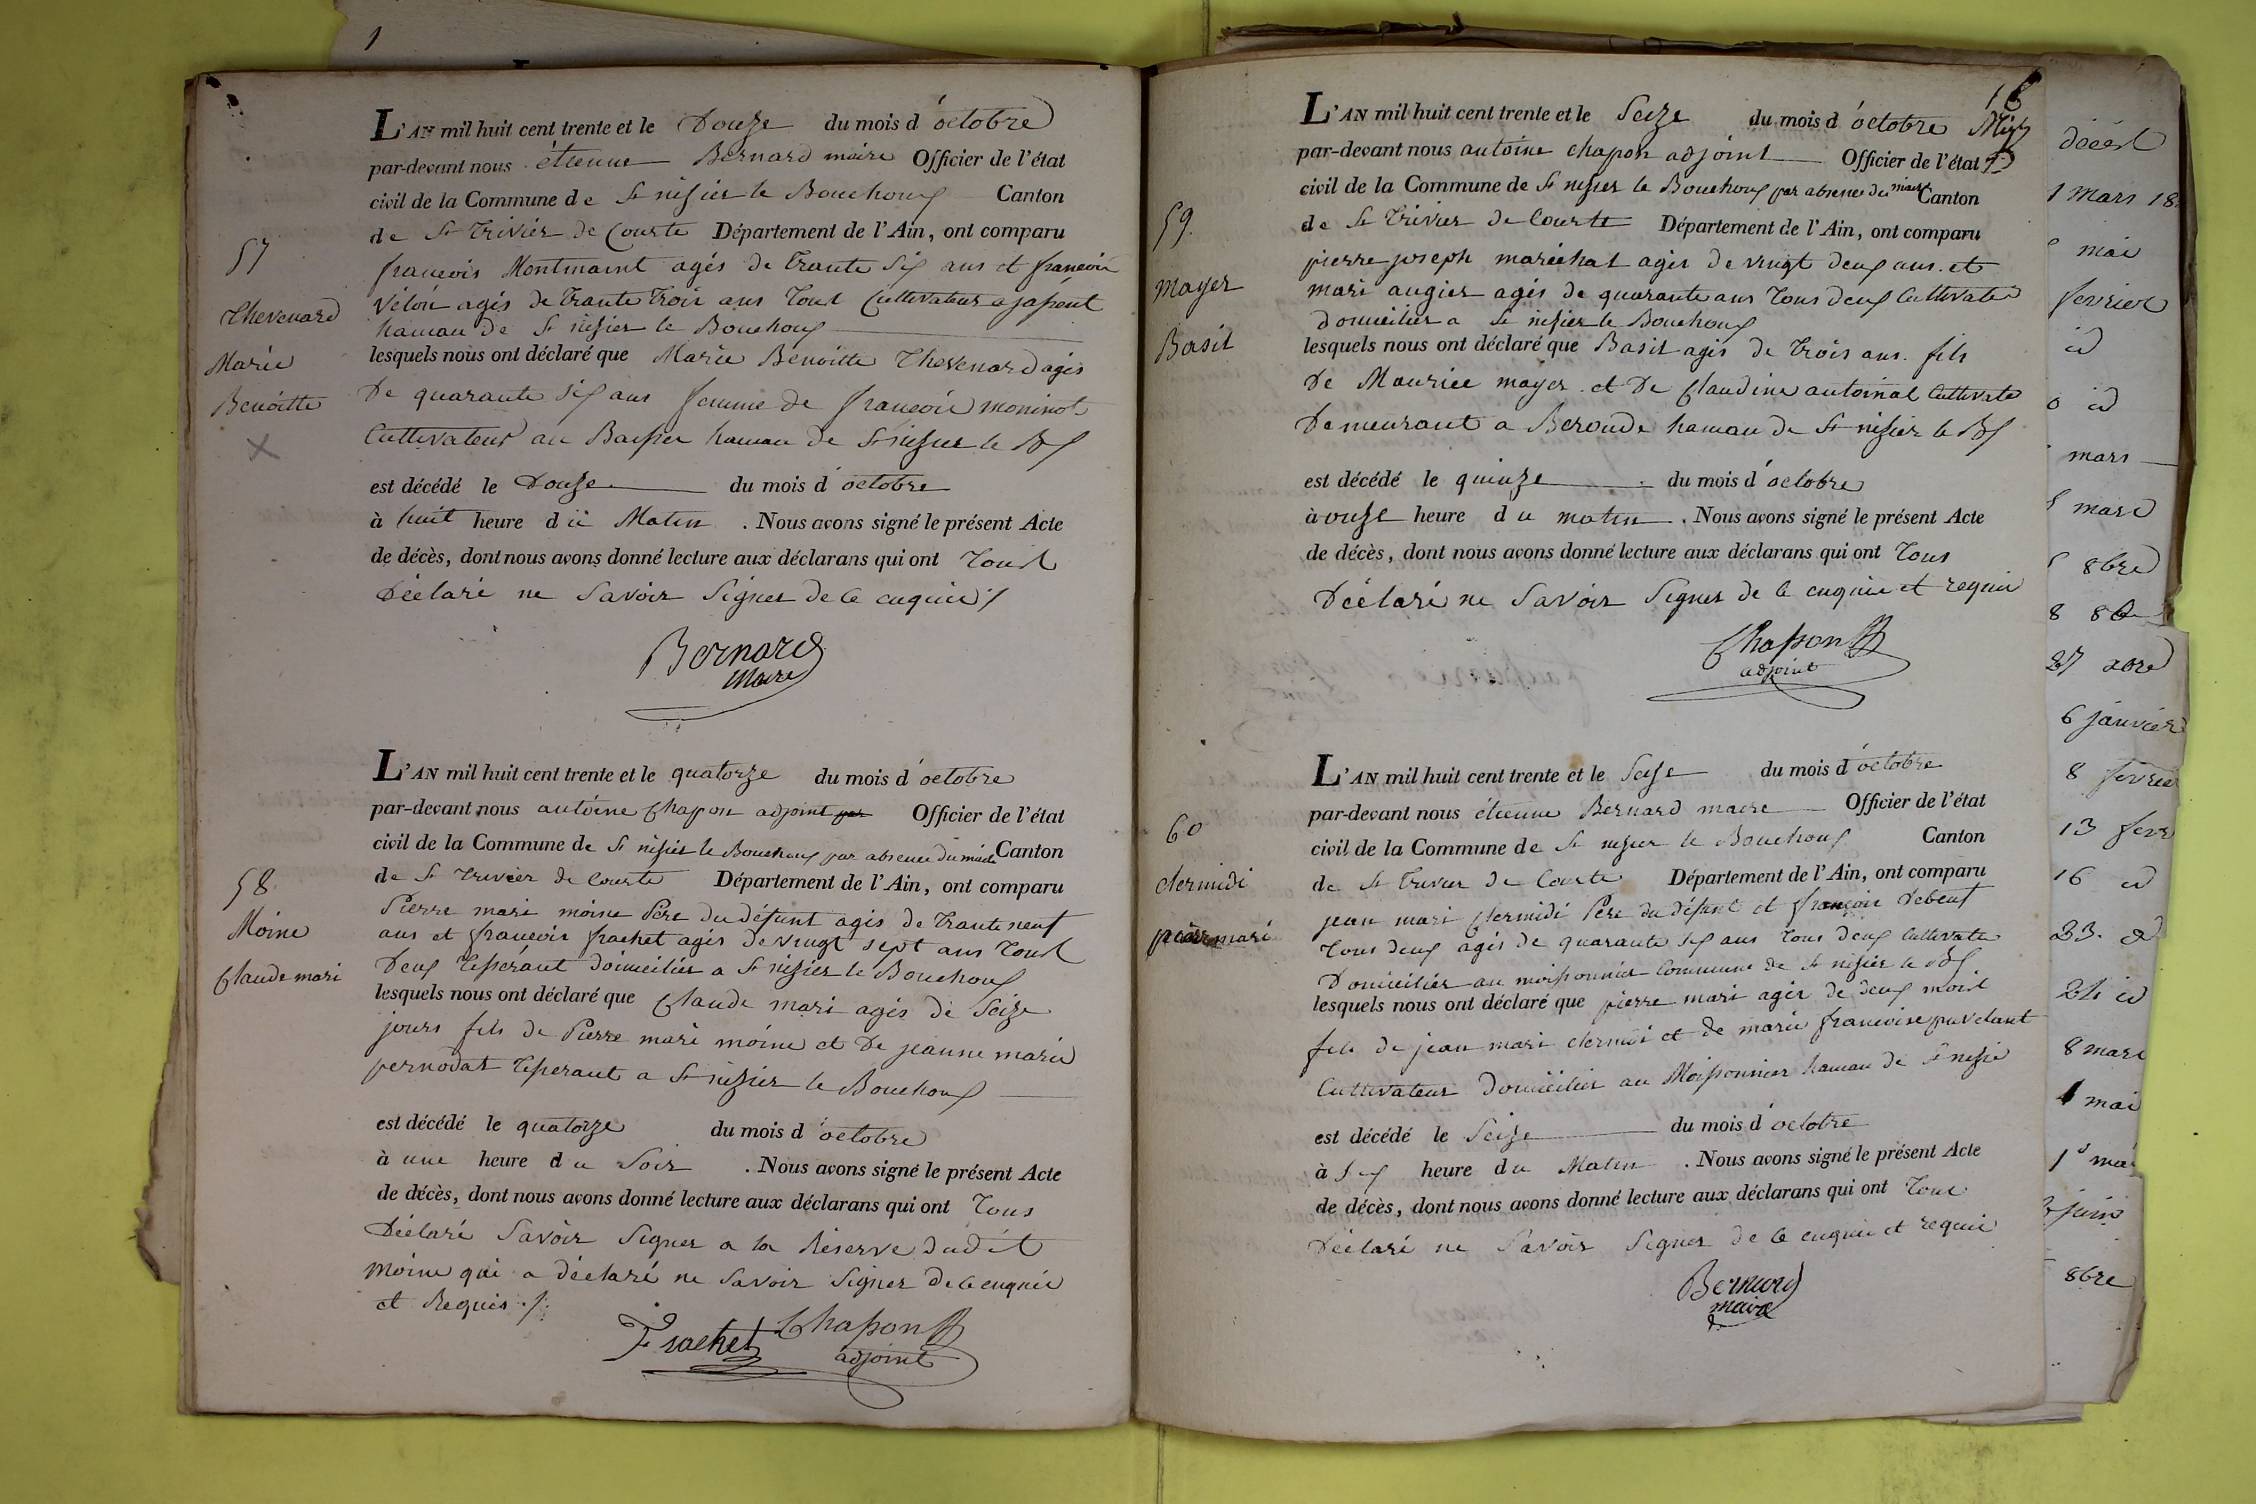 1
57
Thevenard
Marie
Benoitte
L'AN mil huit cent trente et le Douze du mois d'octobre
par-devant nous étienne Bernard maire Officier de l'état
civil de la Commune de St nisier le Bouchoux Canton
de St Trivier de Courte Département de l'Ain, ont comparu
francois Montmaint agés de trante six ans et francois
Veton agés de trante trois ans tout Cultivateur a
hamau de St nisier le Bouchoux
lesquels nous ont déclaré que Marie Benoitte Thevenard agés
De quarante six ans femme de francois moninot
Cultivateur au hamau de St nisier le Bx
est décédé le Douse du mois d'octobre
à huit heure du Matin . Nous avons signé le présent Acte
de décès, dont nous avons donné lecture aux déclarans qui ont Tout
Déclaré ne Savoir Signer de ce enquie
Bernard
Maire
58
Moine
Claude mari
L'AN mil huit cent trente et le quatorze du mois d'octobre
par-devant nous antoine Chapon adjoint par Officier de l'état
civil de la Commune de St nisier le Bouchoux par absence du maire Canton
de St Trivier de Courte Département de l'Ain, ont comparu
Pierre mari moine Père du défunt agis de trante neuf
ans et francois frachet agés de vingt sept ans Tout
Deux Tisserant domicilier a St nisier le Bouchoux
lesquels nous ont déclaré que Claude mari agés de Seize
jours fils de Pierre mari moine et De jeanne marie
pernodat Tisserant a St nisier le Bouchoux
est décédé le quatorze du mois d'octobre
à une heure du Soir . Nous avons signé le présent Acte
de décès, dont nous avons donné lecture aux déclarans qui ont Tous
Déclaré Savoir Signer a la Réserve Dudit
Moine qui a déclaré ne Savoir Signer de ce enquie
et Requis
Frachet Chapon
adjoint
16
59.
mayer
Basil
L'AN mil huit cent trente et le Seize du mois d'octobre
par-devant nous antoine Chapon adjoint Officier de l'état
civil de la Commune de St nisier le Bouchoux par absence du maire Canton
de St Trivier de Courte Département de l'Ain, ont comparu
pierre joseph maréchal agés de vingt deux ans et
mari augier agés de quarante ans tous deux Cultivate
Domicilier a St nisier le Bouchoux
lesquels nous ont déclaré que Basil agis de trois ans. fils
De Maurice mayer et De Claudine antoinat Cultivate
Demeurant a Beronde hamau de St nisier le Bx
est décédé le quinze du mois d'octobre
à onse heure du matin . Nous avons signé le présent Acte
de décès, dont nous avons donné lecture aux déclarans qui ont Tous
Déclaré ne Savoir Signer de ce enquie et requie
Chapon
adjoint
60
clermidi
pierre mari
L'AN mil huit cent trente et le Seise du mois d'octobre
par-devant nous étienne Bernard maire Officier de l'état
civil de la Commune de St nisier le Bouchoux Canton
de St Trivier de Courte Département de l'Ain, ont comparu
jean mari Clermidi Père du défunt et francois Debeuf
Tous deux agis de quarante six ans tous deux Cultivate
Domicilier au moissonnier Commune de St nisier le Bx
lesquels nous ont déclaré que pierre mari agés de deux mois
fils de jean mari clermidi et de marie francoise
Cultivateur Domicilier au Moissonnier hamau de St nisie
est décédé le Seize du mois d'octobre
à six heure du Matin . Nous avons signé le présent Acte
de décès, dont nous avons donné lecture aux déclarans qui ont Tout
Déclaré ne Savoir Signer de ce enquie et requie
Bernard
maire
décès
1 mars 18
mai
fevrier
id
id
mars
mars
8bre
8
27 xbre
6 janvier
8 fevrier
13 fevr
16 id
23. id
24 id
8 mars
1 mai
1 mai
juin
8bre